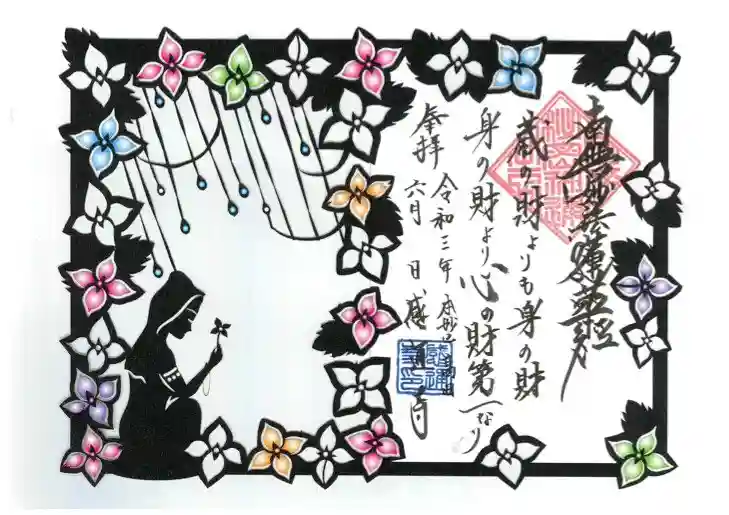 南無妙法蓮華経
蔵の財よりも身の財
身の財より心の財第一なり
奉拝
令和三年
六月 日
感通寺